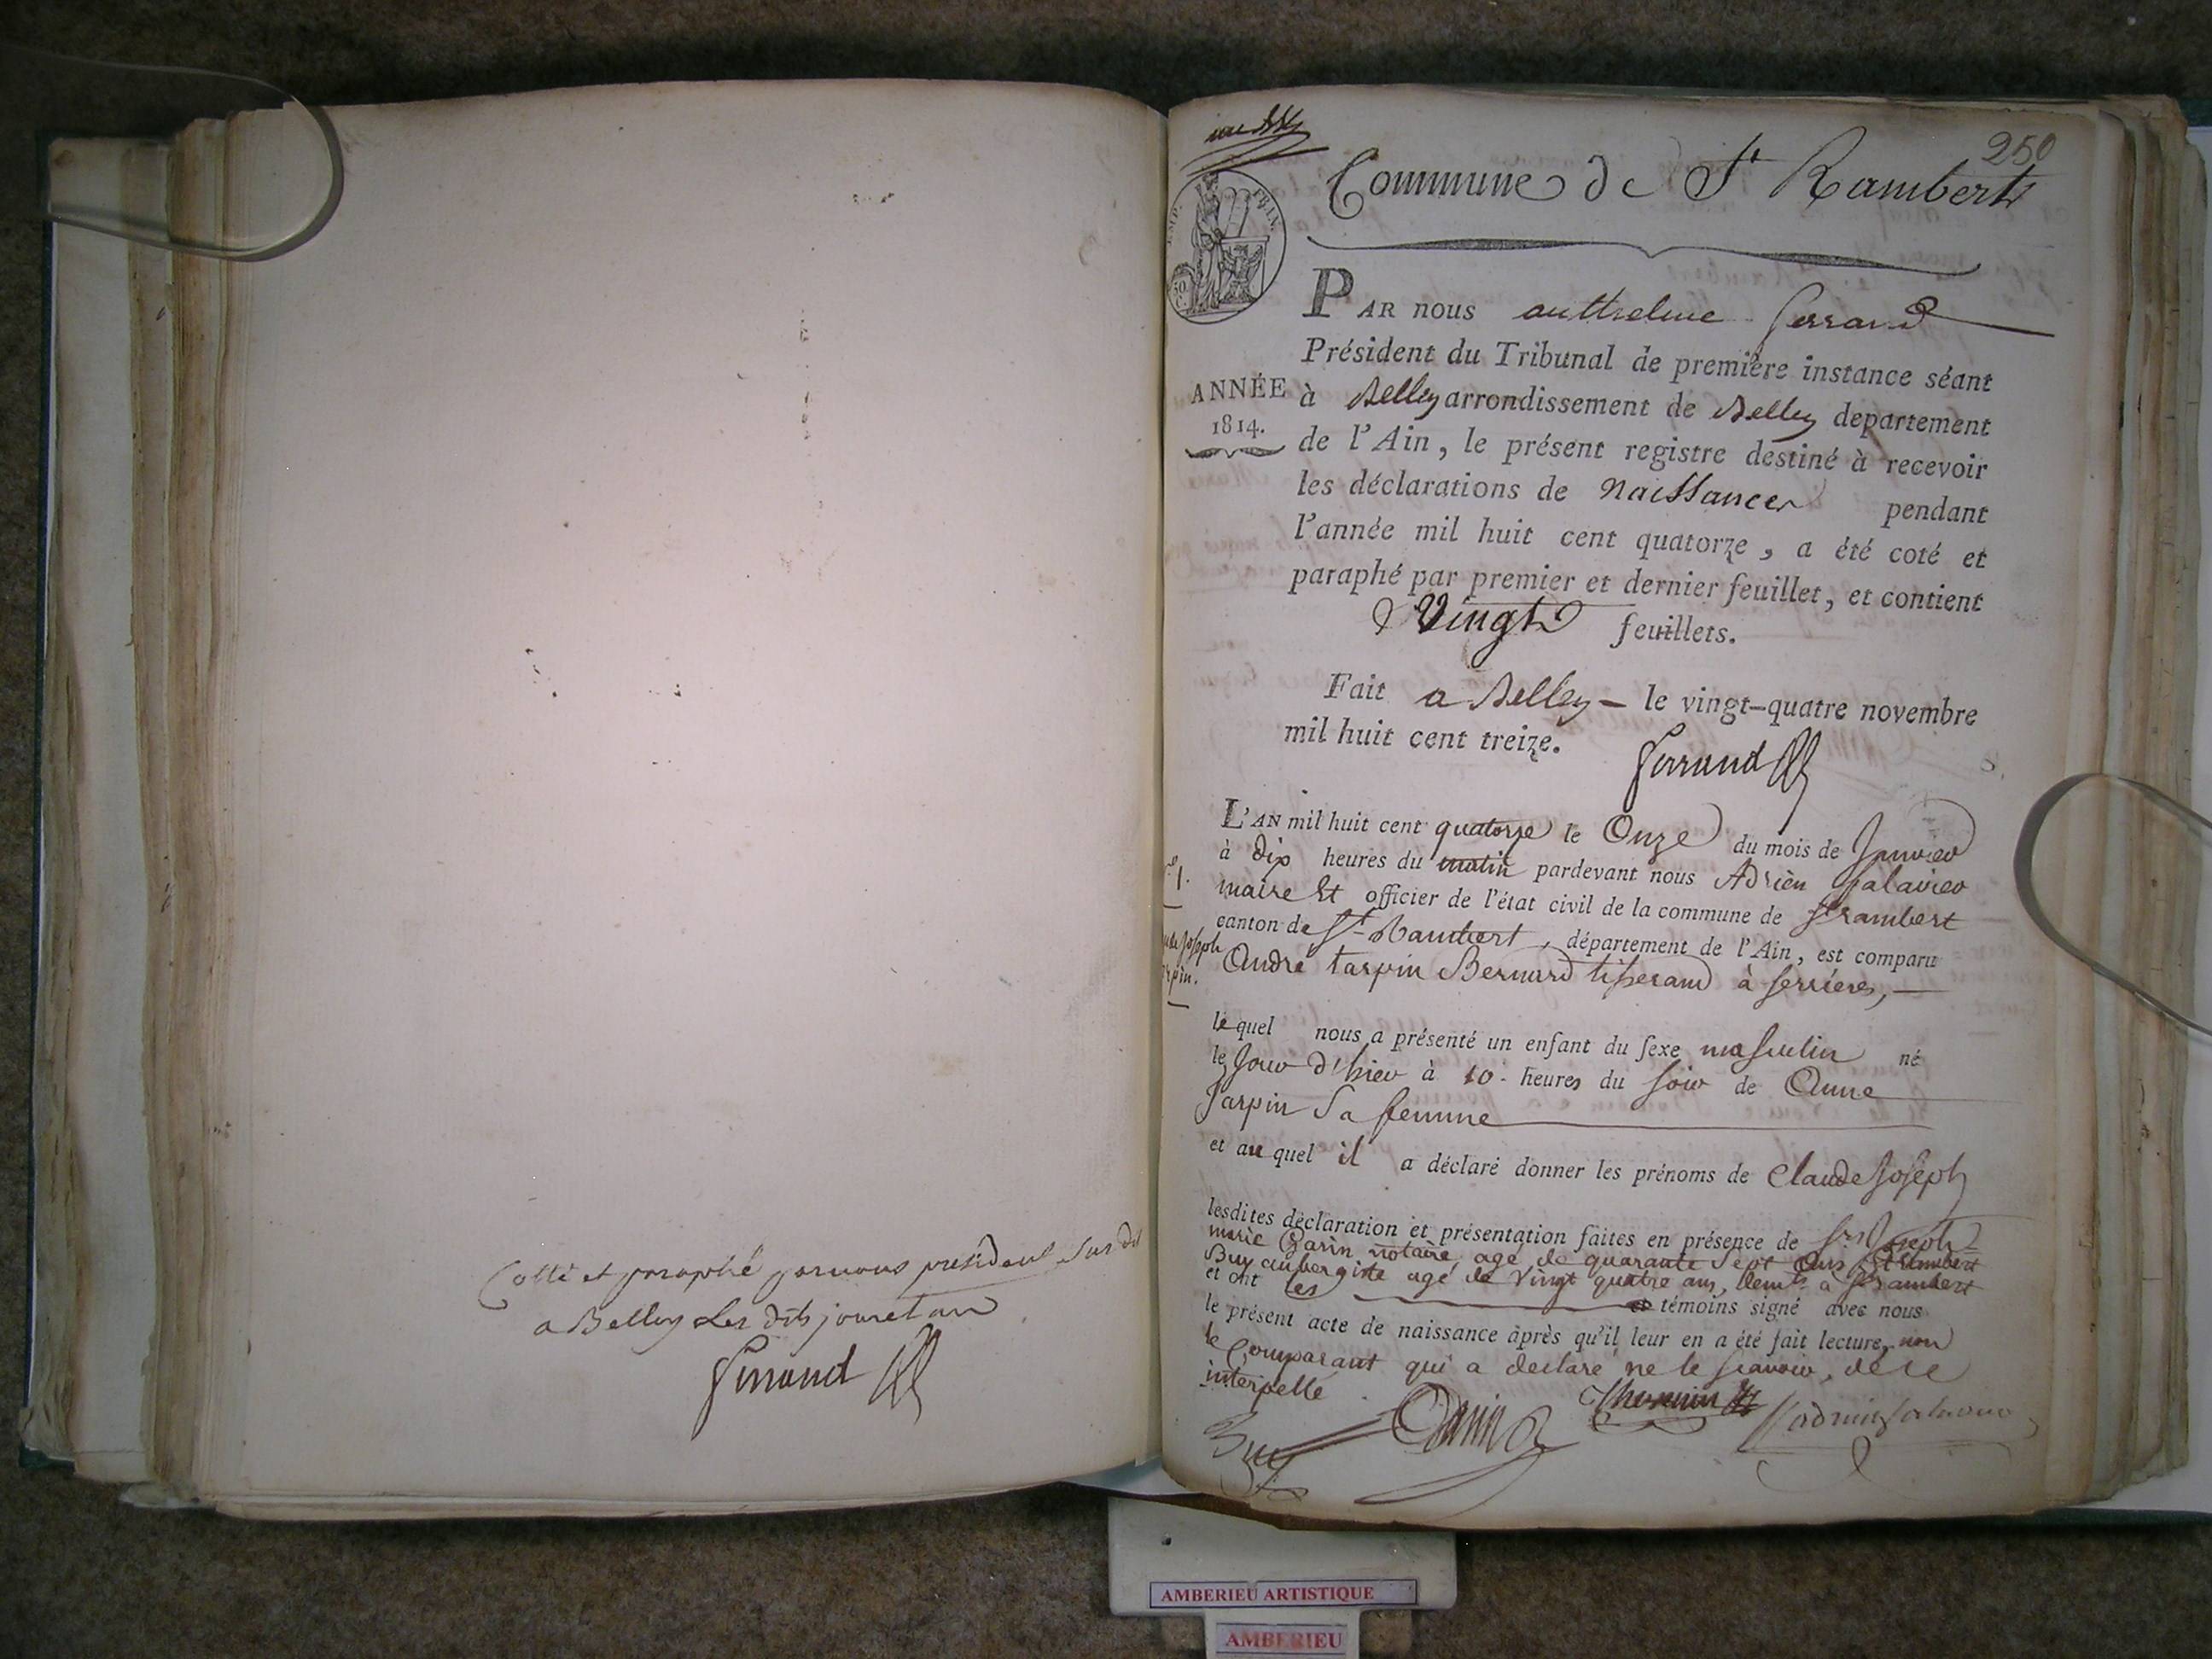 Cotté et paraphé par nous président sus dit
a Belley les dits jour et an
Ferrand
une
250
Commune de St Rambert
EMP. FRAN.
50 C.
PAR nous anthelme ferrand
Président du Tribunal de première instance séant
ANNÉE
1814.
à Belley arrondissement de Belley département
de l'Ain, le présent registre destiné à recevoir
les déclarations de Naissances pendant
l'année mil huit cent quatorze, a été coté et
paraphé par premier et dernier feuillet, et contient
Vingt feuillets.
Fait a Belley – le vingt-quatre novembre
mil huit cent treize.
ferrand
L'AN mil huit cent quatorze le Onze du mois de Janvier
à dix heures du matin pardevant nous Adrien
1.
maire Et officier de l'état civil de la commune de St rambert
canton de St Rambert, département de l'Ain, est comparu
de Joseph
rpin.
André tarpin Bernard tisserand à serrières,
lequel nous a présenté un enfant du sexe masculin né
le Jour d'hier à 10 heures du soir de Anne
Jarpin Sa femme
et auquel il a déclaré donner les prénoms de Claude Joseph
lesdites déclaration et présentation faites en présence de Srs Joseph
marie Garin notaire agé de quarante Sept Ans Et Lambert
Buy aubergiste agé de Vingt quatre ans, demts à St rambert
et ont les témoins signé avec nous
le présent acte de naissance après qu'il leur en a été fait lecture, non
le Comparant qui a déclaré ne le scavoir, de ce
interpellé
Buy Garin
AMBERIEU ARTISTIQUE
AMBERIEU